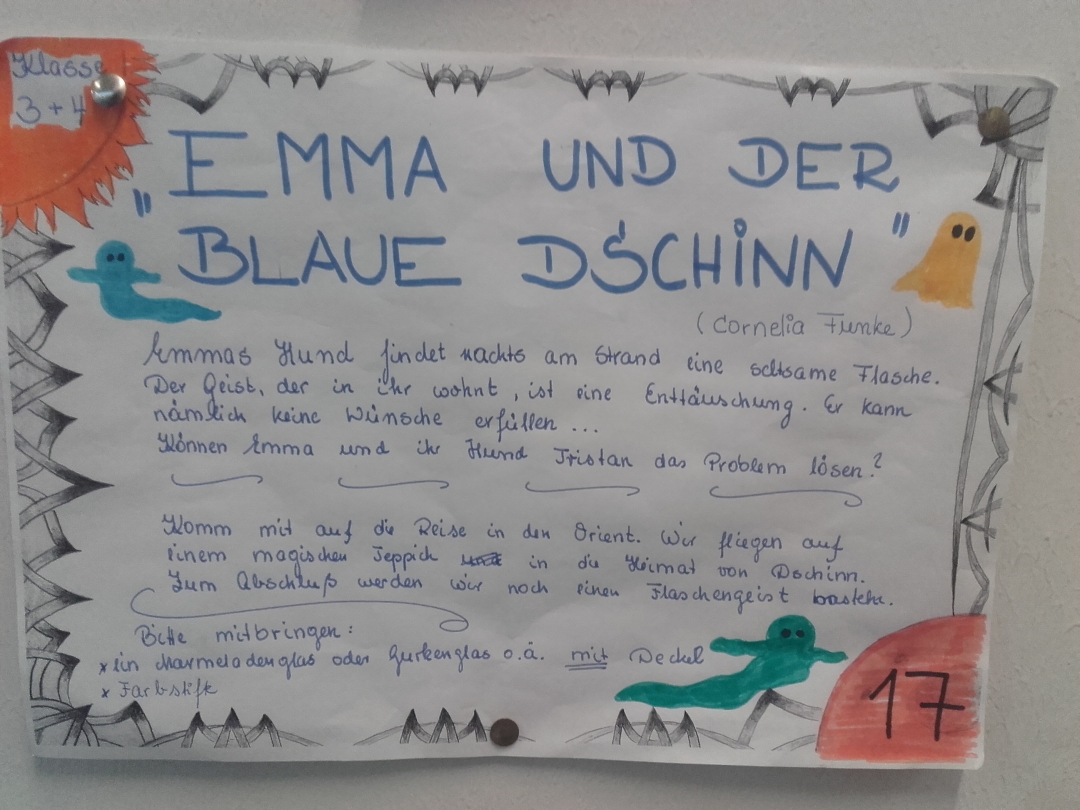 Klasse
3 + 4
"EMMA UND DER
BLAUE DSCHiNN"
(Cornelia Funke)
Emmas Hund findet nachts am Strand eine seltsame Flasche.
Der Geist, der in ihr wohnt, ist eine Enttäuschung. Er kann
nämlich keine Wünsche erfüllen ...
Können Emma und ihr Hund Tristan das Problem lösen?
Komm mit auf die Reise in den Orient. Wir fliegen auf
einem magischen Teppich in die Heimat von Dschinn.
Zum Abschluß werden wir noch einen Flaschengeist basteln.
Bitte mitbringen:
* ein Marmeladenglas oder Gurkenglas o.ä. mit Deckel
* Farbstifte
17